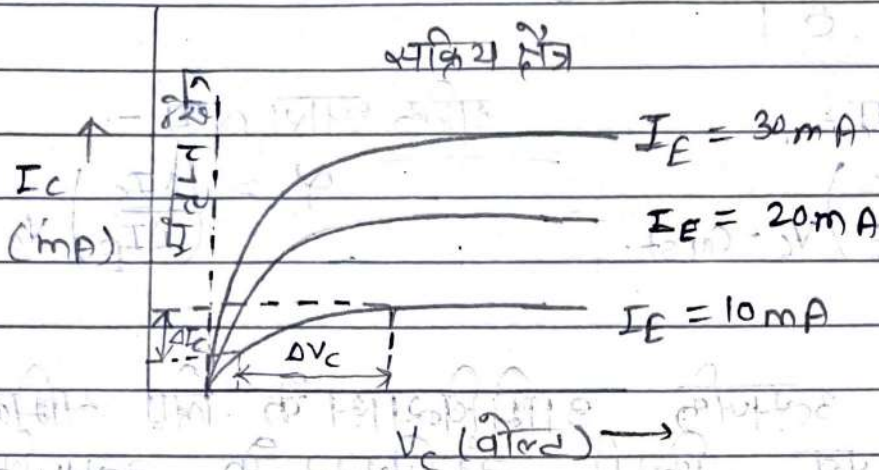 सक्रिय क्षेत्र
संतृप्त क्षेत्र
I_E = 30 mA
I_C
(mA)
I_E = 20 mA
I_E = 10 mA
ΔI_C
ΔV_C
V_C (वोल्ट) →